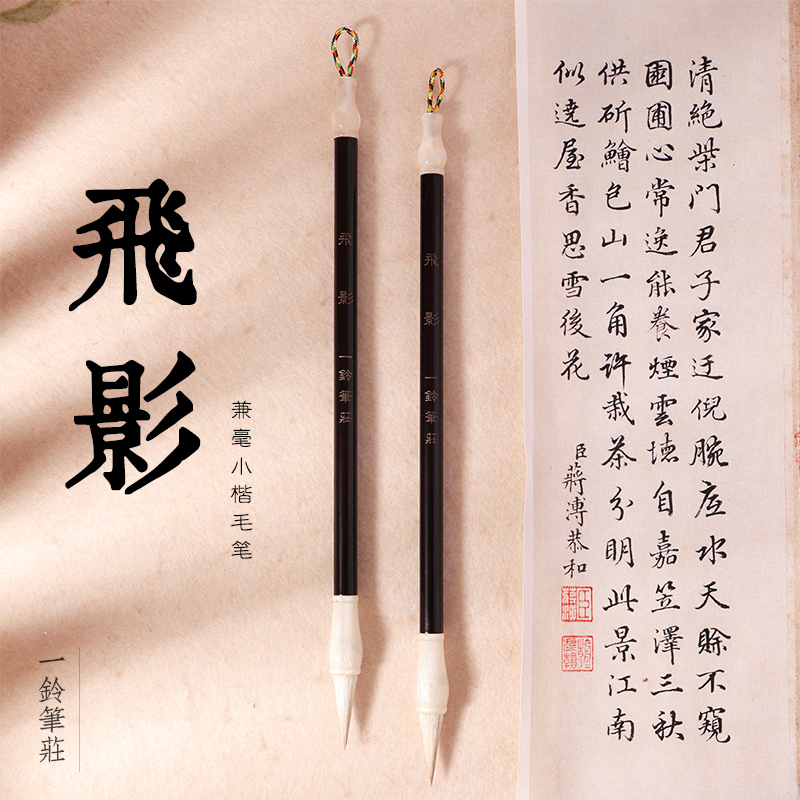 飛影
兼毫小楷毛笔
一鈴筆莊
飛影 一鈴筆莊
飛影 一鈴筆莊
清絶柴門君子家迂倪腕底水天賖不窺
園圃心常逸能養煙雲自嘉笠澤三秋
供斫鱠包山一角許栽茶分明此景江南
似遶屋香思雪後花
臣蔣溥恭和